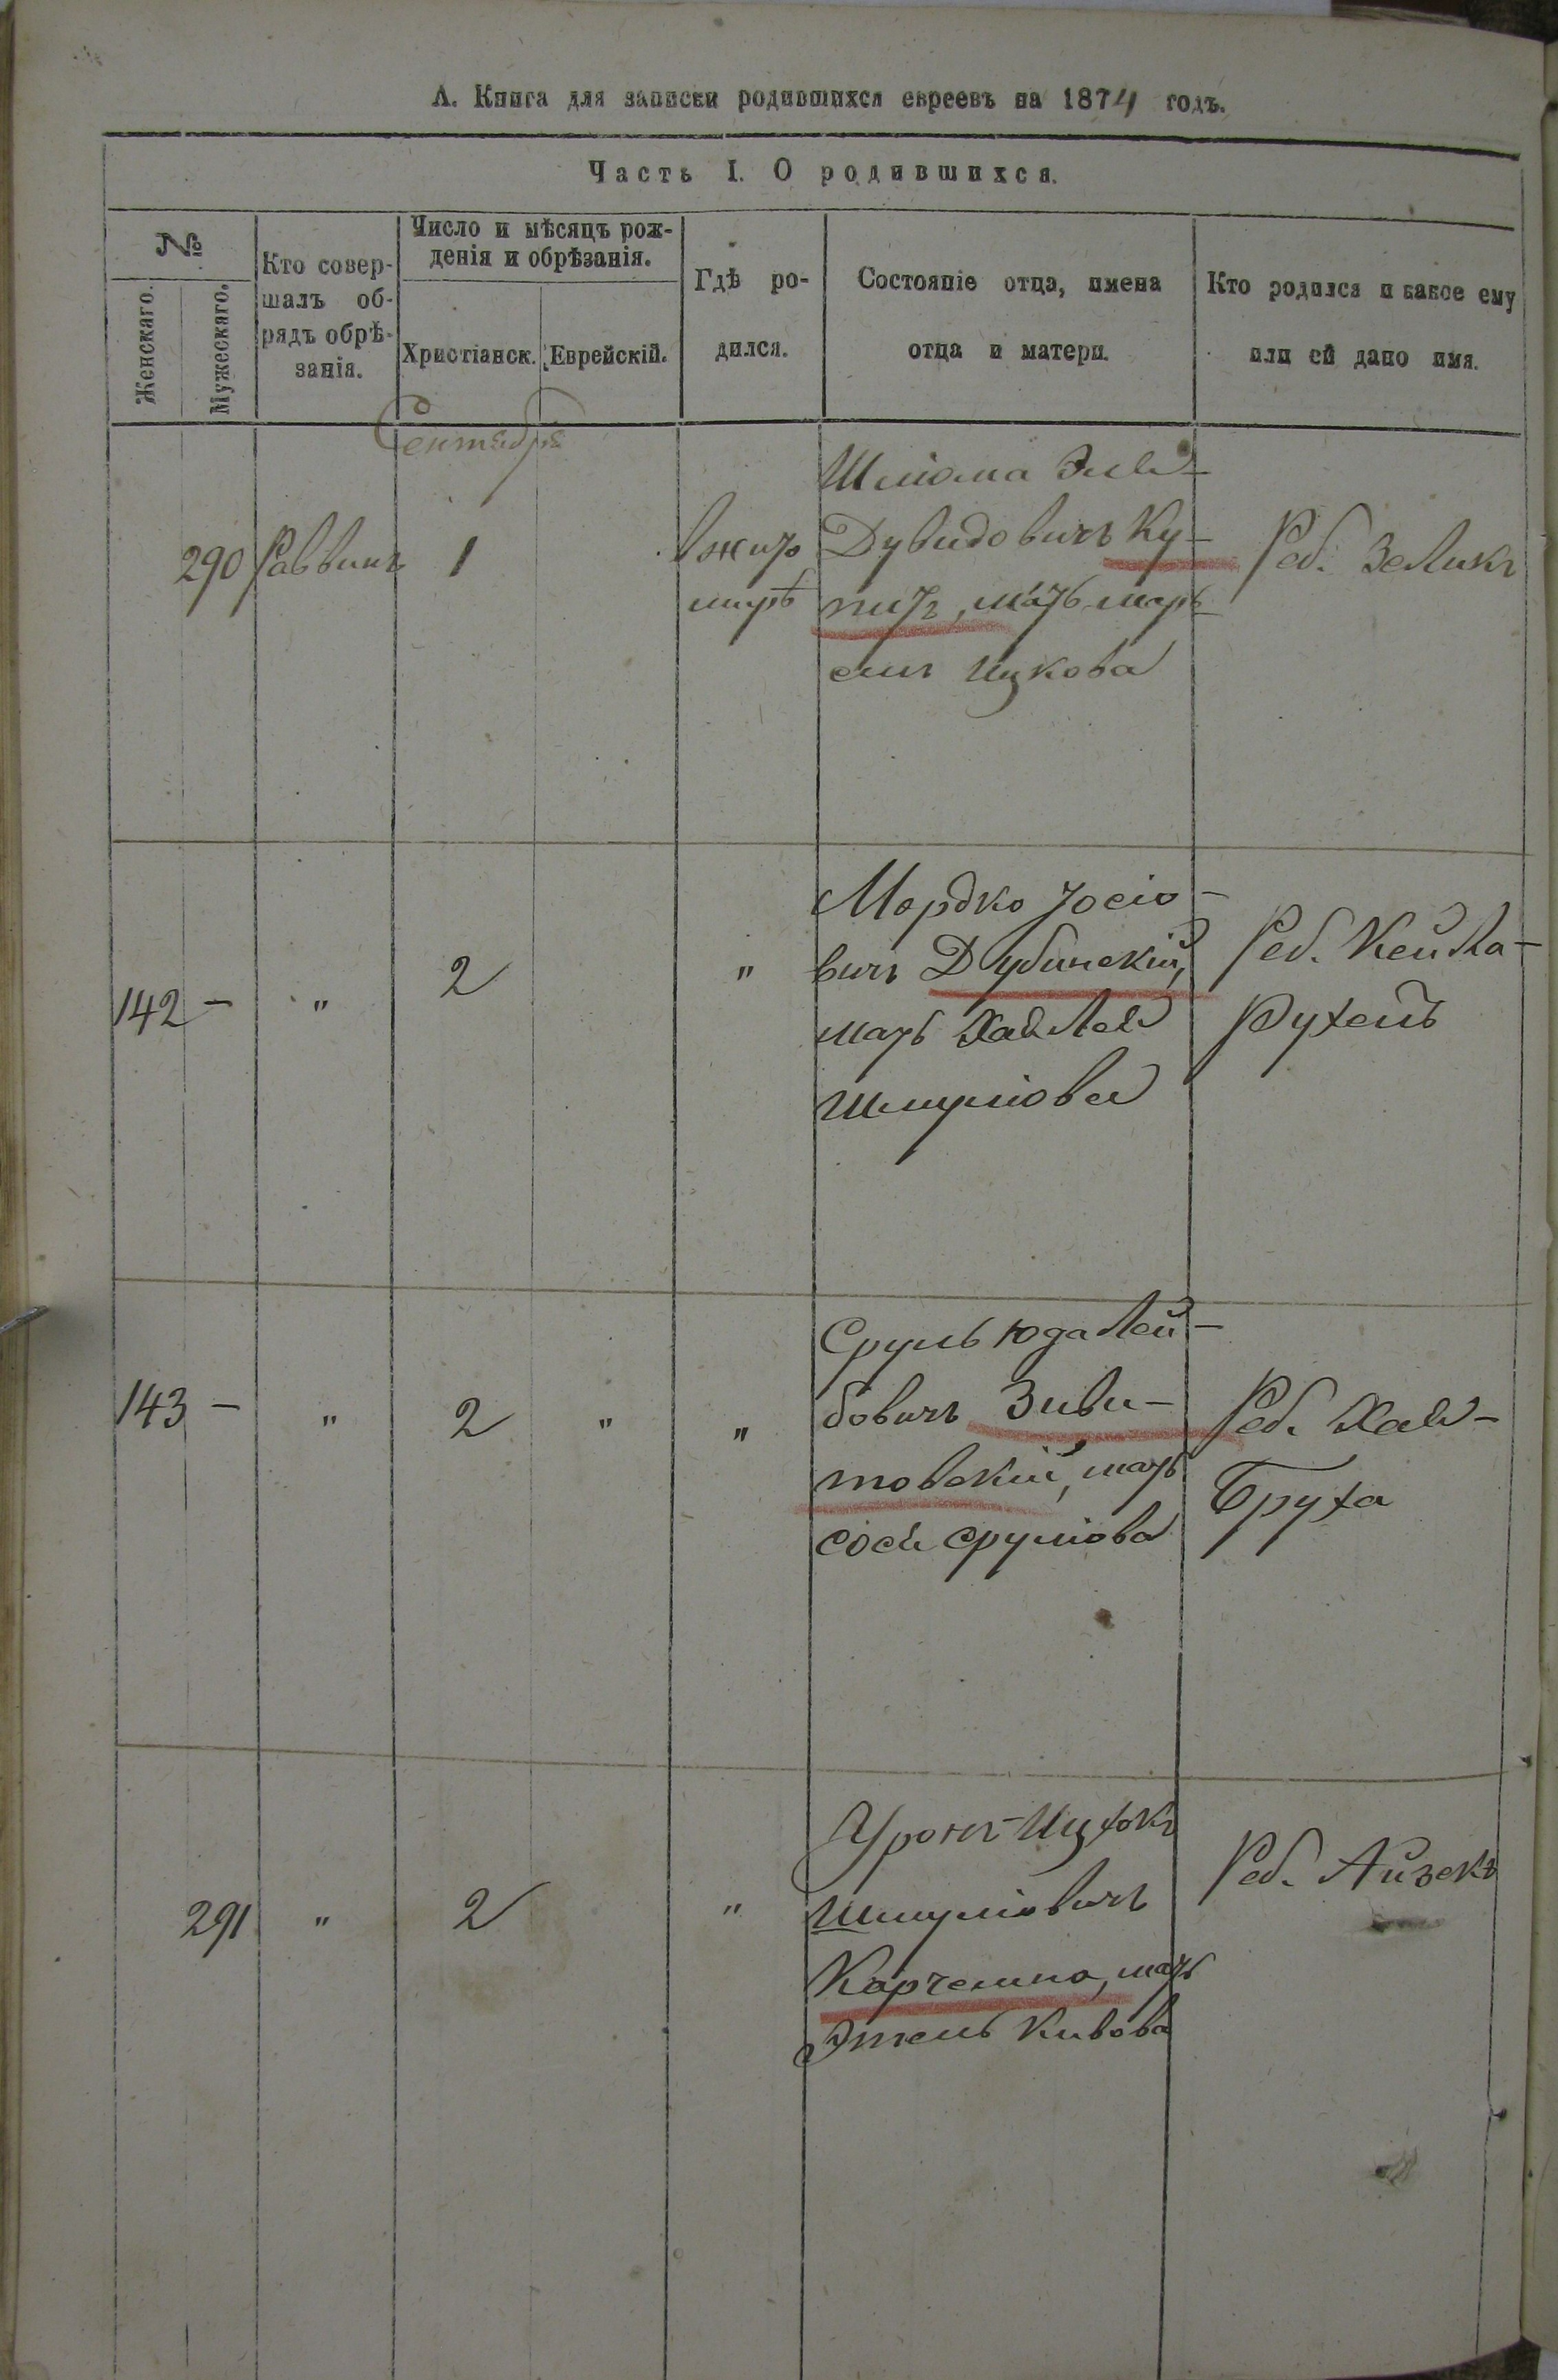 А. Книга для записки родившихся евреевъ на 1874 годъ.
Часть I. О родившихся.
№
Женскаго.
Мужескаго.
Кто совер-
шалъ об-
рядъ обрѣ-
занія.
Число и мѣсяцъ рож-
денія и обрѣзанія.
Христіанск.
Еврейскій.
Гдѣ ро-
дился.
Состояніе отца, имена
отца и матери.
Кто родился и какое ему
или ей дано имя.
Сентября
290
Раввинъ
1
вжито
мирѣ
Шліома
Дувидовичъ Ку-
питъ, мать
Ицкова
Реб. Зеликъ
142 –
"
2
"
Мордко Iосіо-
вичъ Дубинскій,
мать
Шмуліова
Реб. Кейла-
Рухель
143 –
"
2
"
"
Сруль Юда Лей-
бовичъ Зиви-
товскій, мать
Сося Сруліова
Реб. Хая-
Бруха
291
"
2
"
Уронъ-Ицхокъ
Шмуліовичъ
Карчемна, мать
Этель Кивова
Реб. Айзекъ